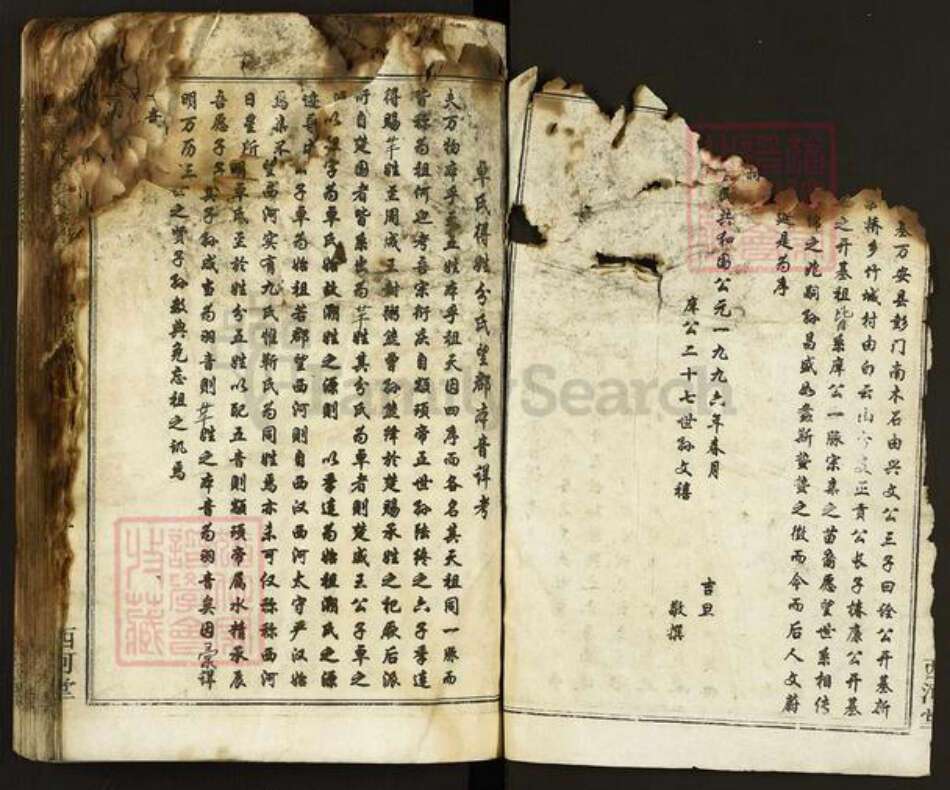 基万安县彭门南木石由兴文公三子曰经公开基新
桥乡竹城村由白云山 正贡公长子栋广公开基
之开基祖皆系库公一脉宗集之苗裔愿望世系相传
之兆嗣孙昌盛如螽斯蛰蛰之徵而令而后人文蔚
是为序
共和国公元一九九六年春月 吉旦
库公二十七世孙文禧 敬撰
卓氏得姓分氏望郡本音详考
夫万物本乎天五姓本乎祖天因四序而各名其天祖同一脉而
皆称为祖何迎考吾宗衍庆自颛顼帝五世孙陆终之六子季连
得赐芈姓至周成王封粥熊曾孙熊绎于楚赐承姓之祀厥后派
衍自楚国者皆系出为芈姓其分氏为卓者则楚威王公子卓之
以 字为卓氏始故溯姓之源则 以季连为始祖溯氏之源
公子卓为始祖若郡望西河则自西汉西河太守严汉始
焉 望西河实有九氏惟靳氏为同姓焉亦未可仅称称西河
日星所 明卓氏至于姓分五姓以配五音则颛顼帝属水精承辰
吾愿子 其子孙咸当为羽音则芈姓之本音为羽音矣因 详
明万历 公之贤子孙数典免忘祖之讥焉
西河堂
西河堂
FamilySearch
谱学会收藏